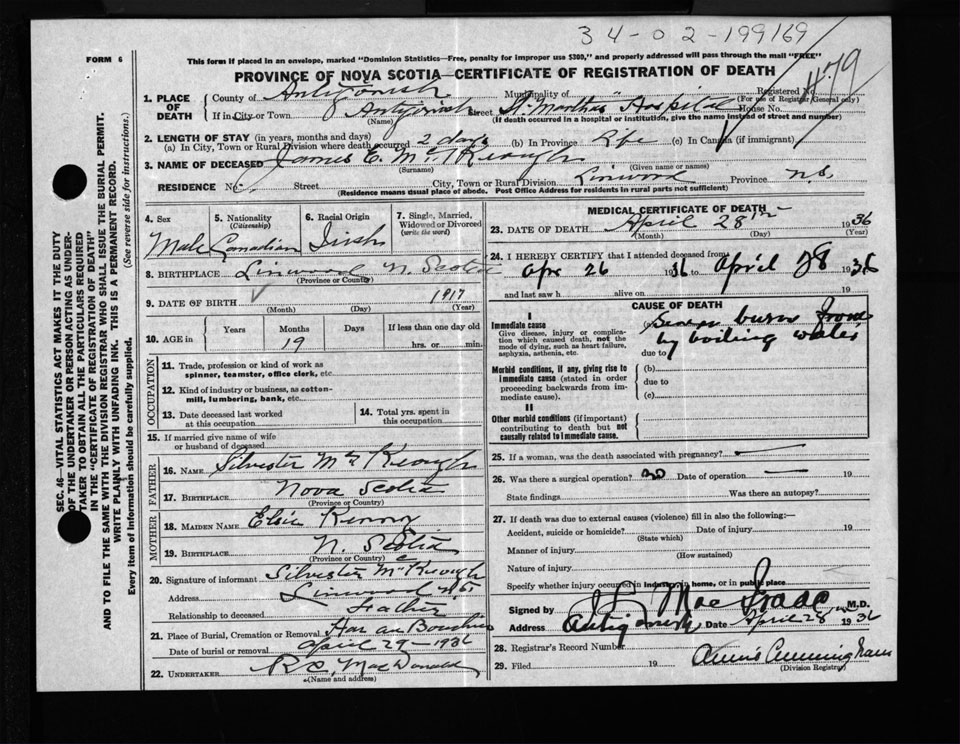 34-02-199169
FORM 6
This form if placed in an envelope, marked "Dominion Statistics—Free, penalty for improper use $300," and properly addressed will pass through the mail "FREE"
PROVINCE OF NOVA SCOTIA—CERTIFICATE OF REGISTRATION OF DEATH
479
1. PLACE OF DEATH
County of Antigonish Municipality of Registered No.
(For use of Registrar General only)
If in City or Town Antigonish Street St. Martha's Hospital House No.
(Name) (If death occurred in a hospital or institution, give the name instead of street and number)
2. LENGTH OF STAY (in years, months and days)
(a) In City, Town or Rural Division where death occurred 2 days (b) In Province Life (c) In Canada (if immigrant)
3. NAME OF DECEASED James E. McKeough
(Surname) (Given name or names)
RESIDENCE No. Street City, Town or Rural Division Linwood Province N.S.
(Residence means usual place of abode. Post Office Address for residents in rural parts not sufficient)
4. Sex Male
5. Nationality (Citizenship) Canadian
6. Racial Origin Irish
7. Single, Married, Widowed or Divorced (write the word)
8. BIRTHPLACE Linwood N. Scotia
(Province or Country)
9. DATE OF BIRTH 1917
(Month) (Day) (Year)
10. AGE in Years Months 19 Days If less than one day old hrs. or min.
OCCUPATION
11. Trade, profession or kind of work as spinner, teamster, office clerk, etc.
12. Kind of industry or business, as cotton-mill, lumbering, bank, etc.
13. Date deceased last worked at this occupation
14. Total yrs. spent in this occupation
15. If married give name of wife or husband of deceased
FATHER
16. NAME Silvester McKeough
17. BIRTHPLACE Nova Scotia
(Province or Country)
MOTHER
18. MAIDEN NAME Elsie
19. BIRTHPLACE N. Scotia
(Province or Country)
20. Signature of informant Silvester McKeough
Address Linwood N.S.
Relationship to deceased Father
21. Place of Burial, Cremation or Removal Har au Bouchie
Date of burial or removal April 29 - 1936
22. UNDERTAKER MacDonald
(Name and address)
MEDICAL CERTIFICATE OF DEATH
23. DATE OF DEATH April 28th 1936
(Month) (Day) (Year)
24. I HEREBY CERTIFY that I attended deceased from
Apr 26 1936 to April 28 1936
and last saw h alive on 19
CAUSE OF DEATH
I
Immediate cause
Give disease, injury or complication which caused death, not the mode of dying, such as heart failure, asphyxia, asthenia, etc.
burn from
by boiling water
due to
Morbid conditions, if any, giving rise to immediate cause (stated in order proceeding backwards from immediate cause).
(b)
due to
(c)
II
Other morbid conditions (if important) contributing to death but not causally related to immediate cause.
25. If a woman, was the death associated with pregnancy?
26. Was there a surgical operation? no Date of operation — 19
State findings Was there an autopsy?
27. If death was due to external causes (violence) fill in also the following:—
Accident, suicide or homicide? Date of injury 19
(State which)
Manner of injury
(How sustained)
Nature of injury
Specify whether injury occurred in industry, in home, or in public place
Signed by MacIsaac M.D.
Address Antigonish Date April 28 1936
28. Registrar's Record Number
29. Filed 19 Cunningham
(Division Registrar)
SEC. 46—VITAL STATISTICS ACT MAKES IT THE DUTY
OF THE UNDERTAKER OR PERSON ACTING AS UNDER-
TAKER TO OBTAIN ALL THE PARTICULARS REQUIRED
IN THE "CERTIFICATE OF REGISTRATION OF DEATH"
AND TO FILE THE SAME WITH THE DIVISION REGISTRAR WHO SHALL ISSUE THE BURIAL PERMIT.
WRITE PLAINLY WITH UNFADING INK. THIS IS A PERMANENT RECORD.
Every item of information should be carefully supplied. (See reverse side for instructions.)